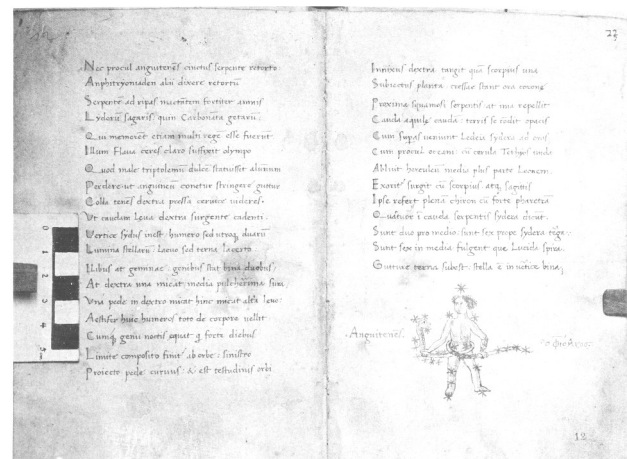 Nec procul anguitenēs cinctus serpente retorto.
Anphitryoniaden alii dixere retortū
Serpente ad ripas mactātem fortiter amnis
Lyderū sagaris: quin Carbonāta getarū:
Qui memorēt etiam multi regē esse fuerut
Illum Flaua ceres claro suffixit olympo
Quod male triptolemū dulcē statuisset alumnum
Perdere: ut anguineū conetur stringere guttur
Colla tenēs dextra pressa ceruice uideres.
Vt caudam leua dextra surgente cadenti.
Vertice sydus inest. humero sed utroq; duarū
Lumina stellarū. Laeuo sed terna lacerto
Ilibus at geminae. genibus stat bina duobus.
At dextra una micat. media pulcherima sura
Vna pede in dextro micat hinc micat altā leuo:
Aestifer huic humeros toto de corpore uellit
Cumq; genu noctis equat q forte diebus
Limite composito finit ab orbe. sinistro
Proiecto pede curuus: & est testudinis orbi
23
Innixus dextra tangit quā scorpius una
Subiectus planta. cressae stant ora coronę
Proxima squamosi serpentis at una repellit
Cauda aquilę cauda. terris sę cōdit opacis
Cum supas ueniunt Ledeia sydera ad oras
Cum procul oceani cū cerula Tethyos unda
Abluit herculeū media plus parte Leonem.
Exortus surgit cū scorpius atq; sagittis
Ipse refert plena chiron cū forte pharetra
Quatuor ī cauda serpentis sydera dicut.
Sunt duo pro medio: sunt sex prope sydera tęga.
Sunt sex in media fulgent que Lucida spira.
Gutture terna subest. stella ē in uertice bina;
.Anguitenēs.
12
0
1
2
3
4
5